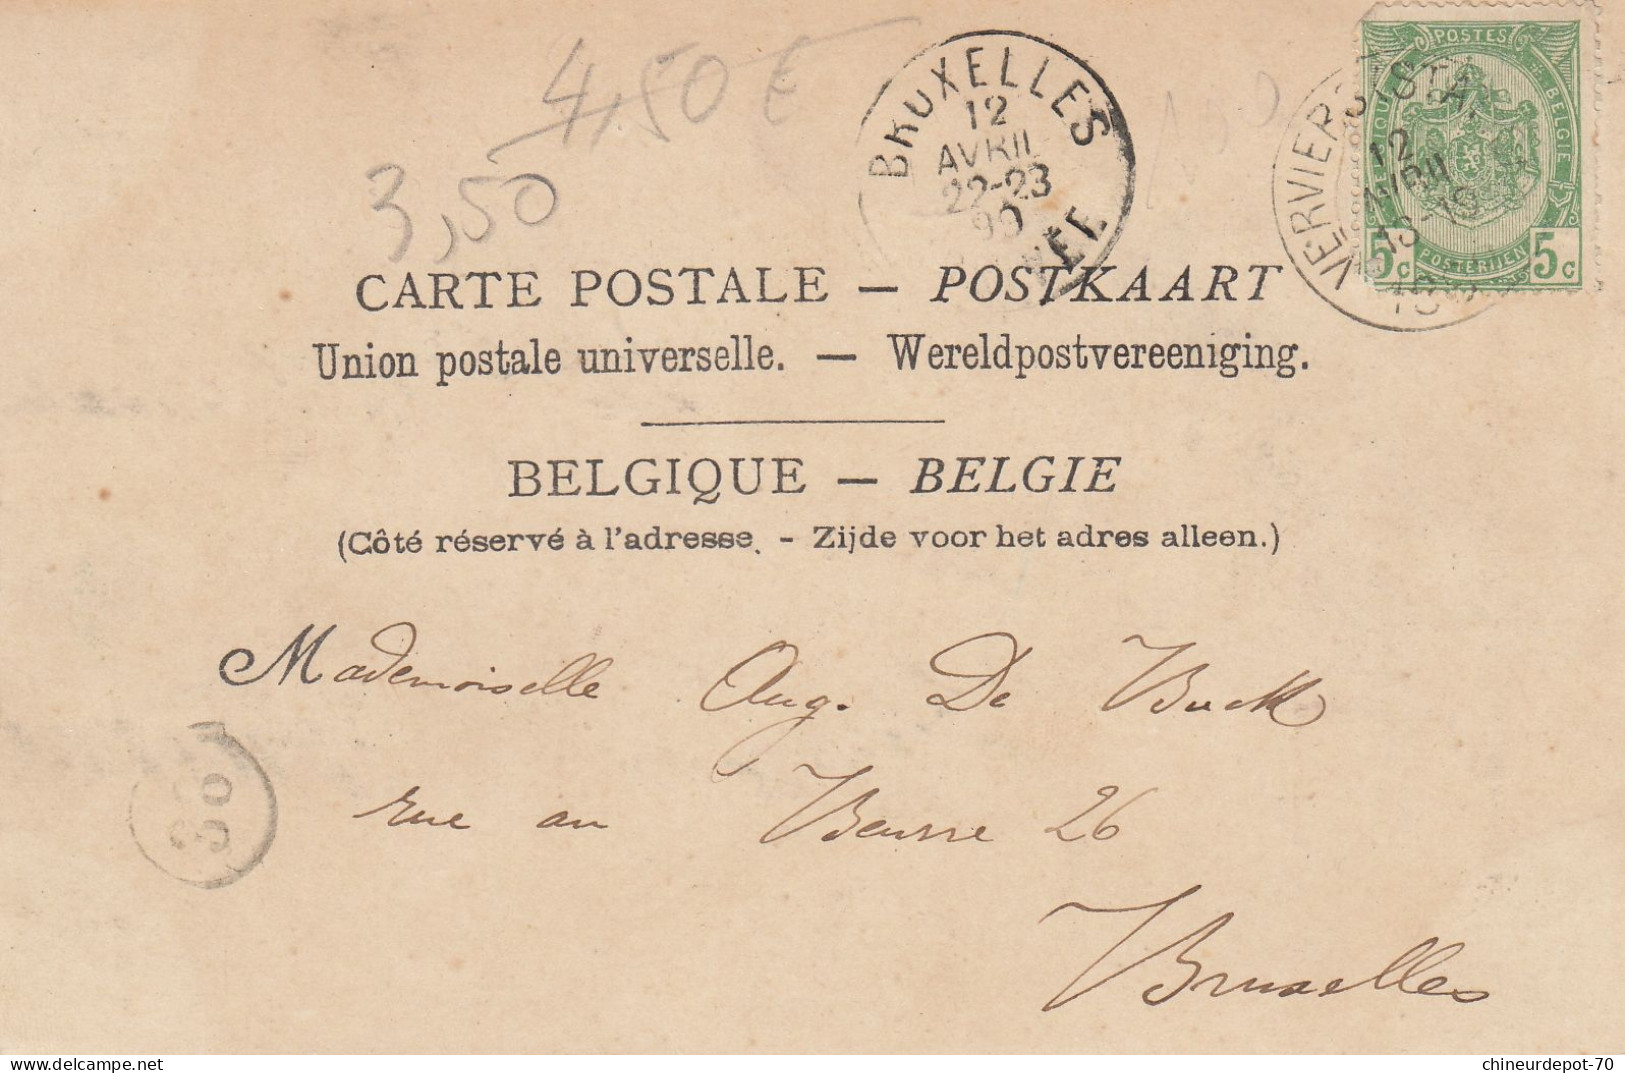 4,50 €
3,50
BRUXELLES
12
AVRIL
22-23
POSTES
BELGIE
5c
POSTERIJEN
5c
VERVIERS
12
AVRIL
CARTE POSTALE — POSTKAART
Union postale universelle. — Wereldpostvereeniging.
BELGIQUE — BELGIE
(Côté réservé à l'adresse. - Zijde voor het adres alleen.)
Mademoiselle Aug. De Buck
rue au Beurre 26
Bruxelles
Delcampe.net
chineurdepot-70